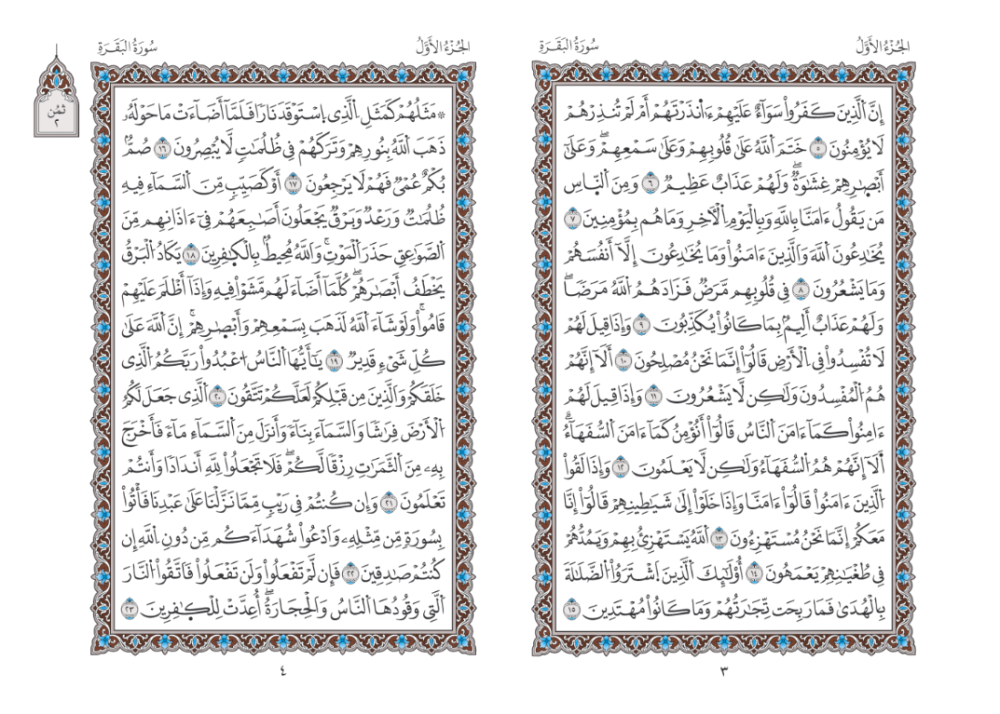 الجُزْءُ الأَوَّلُ
سُورَةُ البَقَرَةِ
إِنَّ الَّذِينَ كَفَرُواْ سَوَآءٌ عَلَيْهِمْ ءَآنذَرْتَهُمْ أَمْ لَمْ تُنذِرْهُمْ
لَا يُؤْمِنُونَ ٥ خَتَمَ اَللَّهُ عَلَىٰ قُلُوبِهِمْ وَعَلَىٰ سَمْعِهِمْۖ وَعَلَىٰٓ
أَبْصَٰرِهِمْ غِشَٰوَةٌۖ وَلَهُمْ عَذَابٌ عَظِيمٌ ٦ وَمِنَ اَلنَّاسِ
مَن يَقُولُ ءَامَنَّا بِاللَّهِ وَبِالْيَوْمِ اِلْأٓخِرِ وَمَا هُم بِمُؤْمِنِينَ ٧
يُخَٰدِعُونَ اَللَّهَ وَالَّذِينَ ءَامَنُواْ وَمَا يُخَٰدِعُونَ إِلَّآ أَنفُسَهُمْ
وَمَا يَشْعُرُونَ ٨ فِى قُلُوبِهِم مَّرَضٌ فَزَادَهُمُ اُللَّهُ مَرَضًاۖ
وَلَهُمْ عَذَابٌ أَلِيمٌۢ بِمَا كَانُواْ يُكَذِّبُونَ ٩ وَإِذَا قِيلَ لَهُمْ
لَا تُفْسِدُواْ فِى اِلْأَرْضِ قَالُوٓاْ إِنَّمَا نَحْنُ مُصْلِحُونَ ١٠ أَلَآ إِنَّهُمْ
هُمُ اُلْمُفْسِدُونَ وَلَٰكِن لَّا يَشْعُرُونَ ١١ وَإِذَا قِيلَ لَهُمْ
ءَامِنُواْ كَمَآ ءَامَنَ اَلنَّاسُ قَالُوٓاْ أَنُؤْمِنُ كَمَآ ءَامَنَ اَلسُّفَهَآءُۗ
أَلَآ إِنَّهُمْ هُمُ اُلسُّفَهَآءُ وَلَٰكِن لَّا يَعْلَمُونَ ١٢ وَإِذَا لَقُواْ
اُلَّذِينَ ءَامَنُواْ قَالُوٓاْ ءَامَنَّا وَإِذَا خَلَوْاْ إِلَىٰ شَيَٰطِينِهِمْ قَالُوٓاْ إِنَّا
مَعَكُمْ إِنَّمَا نَحْنُ مُسْتَهْزِءُونَ ١٣ اَللَّهُ يَسْتَهْزِئُ بِهِمْ وَيَمُدُّهُمْ
فِى طُغْيَٰنِهِمْ يَعْمَهُونَ ١٤ أُوْلَٰٓئِكَ اَلَّذِينَ اَشْتَرَوُاْ اُلضَّلَٰلَةَ
بِالْهُدَىٰ فَمَا رَبِحَت تِّجَٰرَتُهُمْ وَمَا كَانُواْ مُهْتَدِينَ ١٥
٣
الجُزْءُ الأَوَّلُ
سُورَةُ البَقَرَةِ
ثُمُن
٢
۞ مَثَلُهُمْ كَمَثَلِ اِلَّذِى اِسْتَوْقَدَ نَارًا فَلَمَّآ أَضَآءَتْ مَا حَوْلَهُۥ
ذَهَبَ اَللَّهُ بِنُورِهِمْ وَتَرَكَهُمْ فِى ظُلُمَٰتٍ لَّا يُبْصِرُونَ ١٦ صُمٌّۢ
بُكْمٌ عُمْىٌ فَهُمْ لَا يَرْجِعُونَ ١٧ أَوْ كَصَيِّبٍ مِّنَ اَلسَّمَآءِ فِيهِ
ظُلُمَٰتٌ وَرَعْدٌ وَبَرْقٌ يَجْعَلُونَ أَصَٰبِعَهُمْ فِىٓ ءَاذَانِهِم مِّنَ
اَلصَّوَٰعِقِ حَذَرَ اَلْمَوْتِۚ وَاللَّهُ مُحِيطٌۢ بِالْكَٰفِرِينَ ١٨ يَكَادُ اُلْبَرْقُ
يَخْطَفُ أَبْصَٰرَهُمْۖ كُلَّمَآ أَضَآءَ لَهُم مَّشَوْاْ فِيهِ وَإِذَآ أَظْلَمَ عَلَيْهِمْ
قَامُواْۚ وَلَوْ شَآءَ اَللَّهُ لَذَهَبَ بِسَمْعِهِمْ وَأَبْصَٰرِهِمْۚ إِنَّ اَللَّهَ عَلَىٰ
كُلِّ شَىْءٍ قَدِيرٌ ١٩ يَٰٓأَيُّهَا اَلنَّاسُ اُعْبُدُواْ رَبَّكُمُ اُلَّذِى
خَلَقَكُمْ وَالَّذِينَ مِن قَبْلِكُمْ لَعَلَّكُمْ تَتَّقُونَ ٢٠ اَلَّذِى جَعَلَ لَكُمُ
اُلْأَرْضَ فِرَٰشًا وَالسَّمَآءَ بِنَآءً وَأَنزَلَ مِنَ اَلسَّمَآءِ مَآءً فَأَخْرَجَ
بِهِۦ مِنَ اَلثَّمَرَٰتِ رِزْقًا لَّكُمْۖ فَلَا تَجْعَلُواْ لِلَّهِ أَندَادًا وَأَنتُمْ
تَعْلَمُونَ ٢١ وَإِن كُنتُمْ فِى رَيْبٍ مِّمَّا نَزَّلْنَا عَلَىٰ عَبْدِنَا فَأْتُواْ
بِسُورَةٍ مِّن مِّثْلِهِۦ وَادْعُواْ شُهَدَآءَكُم مِّن دُونِ اِللَّهِ إِن
كُنتُمْ صَٰدِقِينَ ٢٢ فَإِن لَّمْ تَفْعَلُواْ وَلَن تَفْعَلُواْ فَاتَّقُواْ اُلنَّارَ
اَلَّتِى وَقُودُهَا اَلنَّاسُ وَالْحِجَارَةُۖ أُعِدَّتْ لِلْكَٰفِرِينَ ٢٣
٤